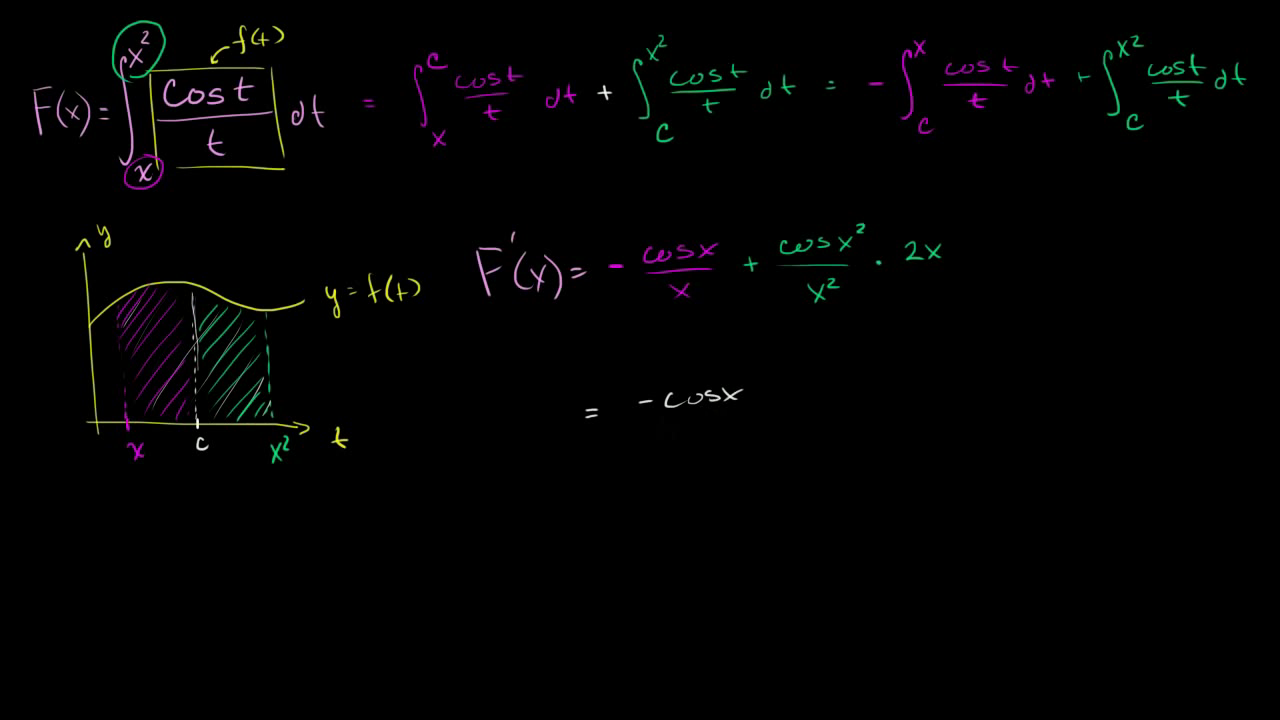 F(x) = ∫_x^{x²} cos t / t dt = ∫_x^c cos t / t dt + ∫_c^{x²} cos t / t dt = - ∫_c^x cos t / t dt + ∫_c^{x²} cos t / t dt
f(t)
y
y = f(t)
x c x² t
F'(x) = - cos x / x + cos x² / x² · 2x
= - cos x